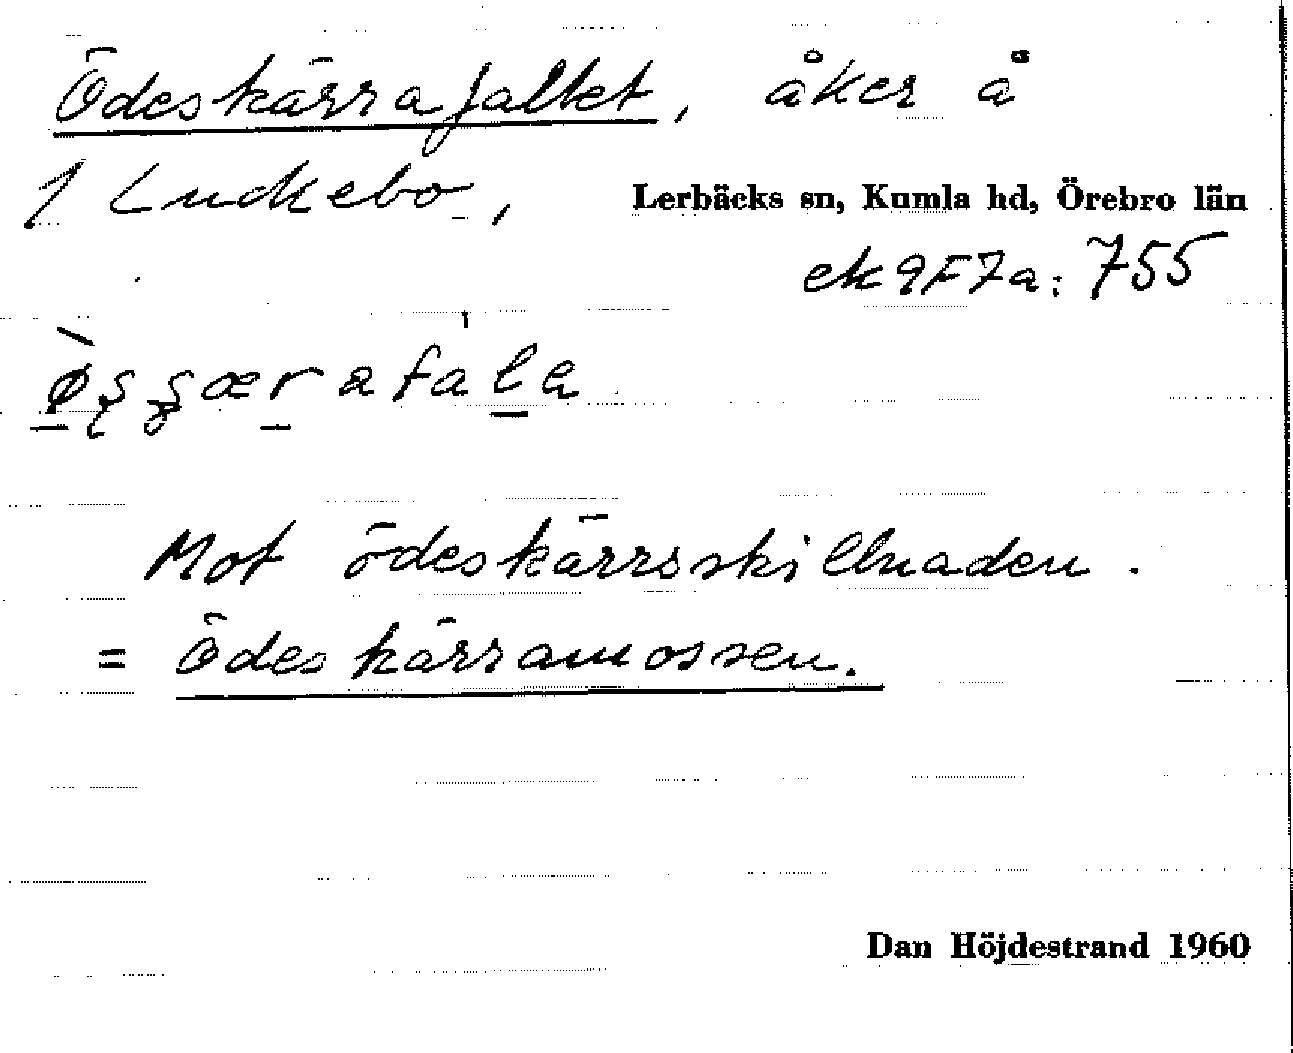 Ödeskärrafallet, åker å
1 Luckebo,
Lerbäcks sn, Kumla hd, Örebro län
ek 9F7a: 755
Mot ödeskärrsskillnaden.
= Ödeskärramossen.
Dan Höjdestrand 1960